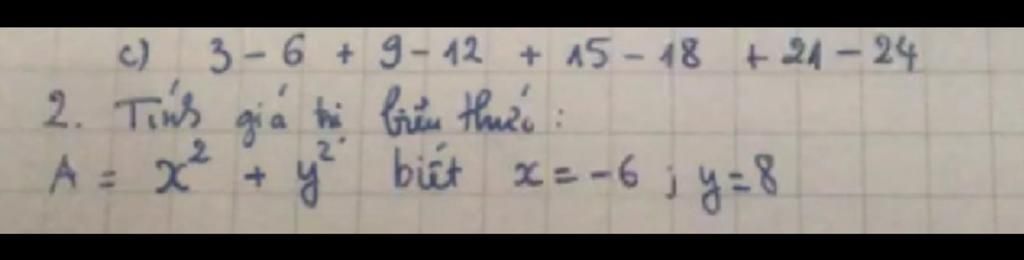 c) 3 - 6 + 9 - 12 + 15 - 18 + 21 - 24
2. Tính giá trị biểu thức :
A = x² + y² biết x = -6 ; y = 8